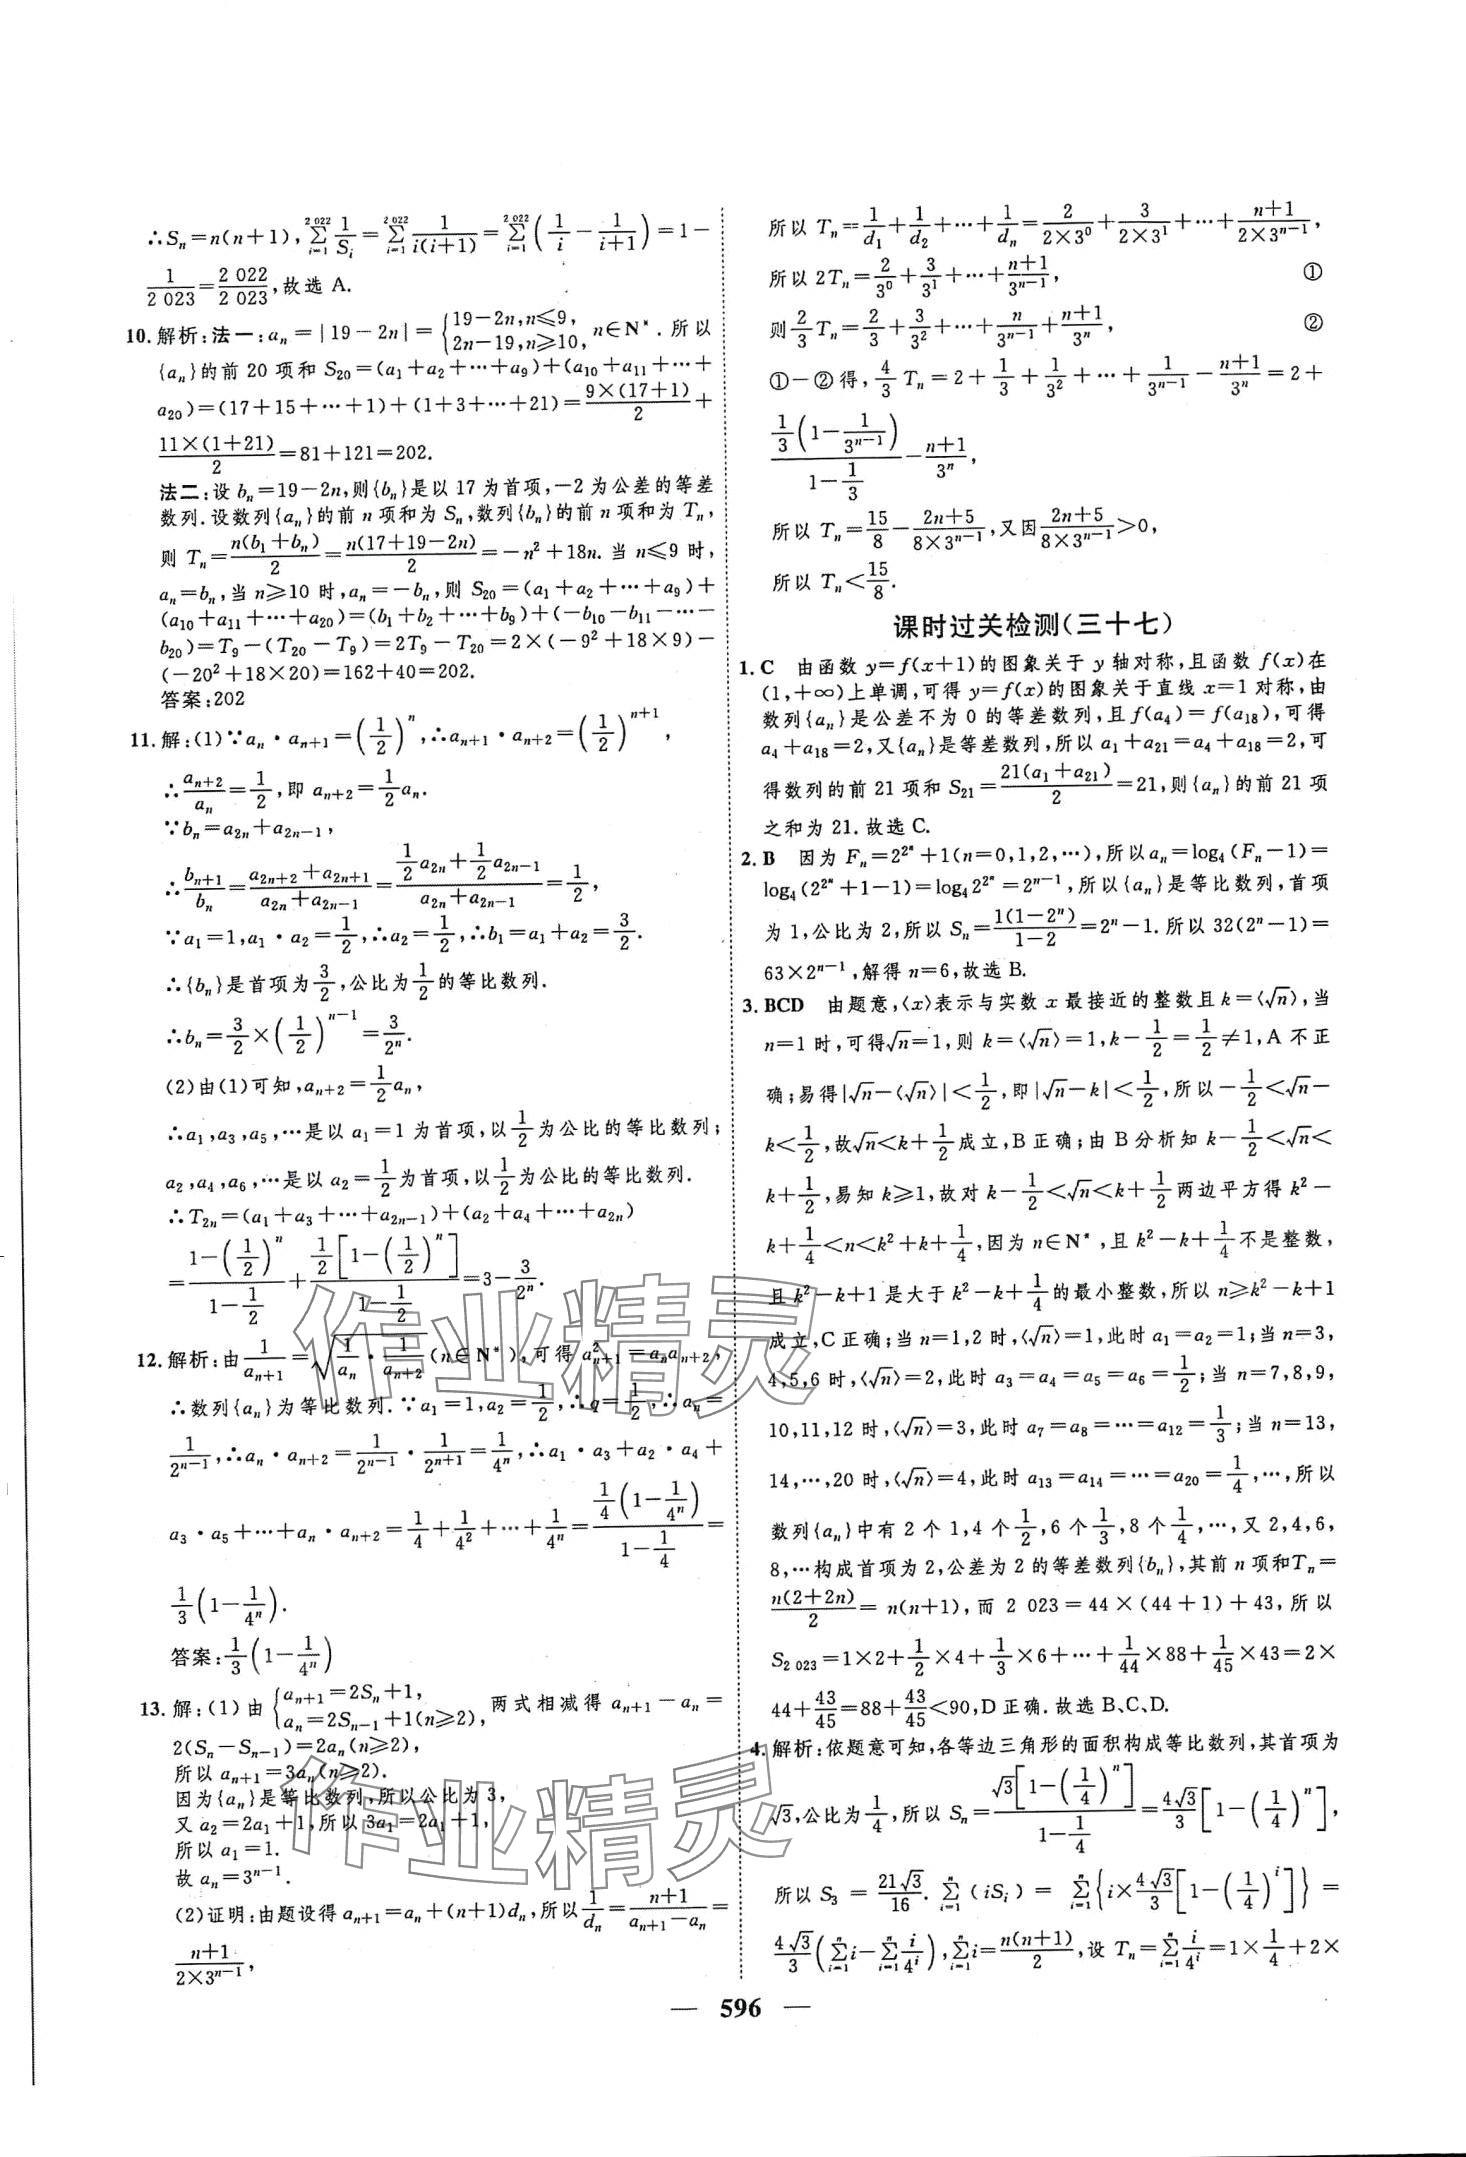 ∴Sₙ=n(n+1),∑_{i=1}^{2 022} 1/Sᵢ=∑_{i=1}^{2 022} 1/(i(i+1))=∑_{i=1}^{2 022}(1/i-1/(i+1))=1-
1/2 023=2 022/2 023,故选 A.
10.解析:法一:aₙ=|19-2n|={19-2n,n≤9, 2n-19,n≥10, n∈N*.所以
{aₙ}的前 20 项和 S₂₀=(a₁+a₂+⋯+a₉)+(a₁₀+a₁₁+⋯+
a₂₀)=(17+15+⋯+1)+(1+3+⋯+21)=9×(17+1)/2+
11×(1+21)/2=81+121=202.
法二:设 bₙ=19-2n,则{bₙ}是以 17 为首项,-2 为公差的等差
数列.设数列{aₙ}的前 n 项和为 Sₙ,数列{bₙ}的前 n 项和为 Tₙ,
则 Tₙ=n(b₁+bₙ)/2=n(17+19-2n)/2=-n²+18n.当 n≤9 时,
aₙ=bₙ,当 n≥10 时,aₙ=-bₙ,则 S₂₀=(a₁+a₂+⋯+a₉)+
(a₁₀+a₁₁+⋯+a₂₀)=(b₁+b₂+⋯+b₉)+(-b₁₀-b₁₁-⋯-
b₂₀)=T₉-(T₂₀-T₉)=2T₉-T₂₀=2×(-9²+18×9)-
(-20²+18×20)=162+40=202.
答案:202
11.解:(1)∵aₙ·aₙ₊₁=(1/2)ⁿ,∴aₙ₊₁·aₙ₊₂=(1/2)ⁿ⁺¹,
∴aₙ₊₂/aₙ=1/2,即 aₙ₊₂=1/2 aₙ.
∵bₙ=a₂ₙ+a₂ₙ₋₁,
∴bₙ₊₁/bₙ=(a₂ₙ₊₂+a₂ₙ₊₁)/(a₂ₙ+a₂ₙ₋₁)=(1/2 a₂ₙ+1/2 a₂ₙ₋₁)/(a₂ₙ+a₂ₙ₋₁)=1/2,
∵a₁=1,a₁·a₂=1/2,∴a₂=1/2,∴b₁=a₁+a₂=3/2.
∴{bₙ}是首项为 3/2,公比为 1/2 的等比数列.
∴bₙ=3/2×(1/2)ⁿ⁻¹=3/2ⁿ.
(2)由(1)可知,aₙ₊₂=1/2 aₙ,
∴a₁,a₃,a₅,⋯是以 a₁=1 为首项,以 1/2 为公比的等比数列;
a₂,a₄,a₆,⋯是以 a₂=1/2 为首项,以 1/2 为公比的等比数列.
∴T₂ₙ=(a₁+a₃+⋯+a₂ₙ₋₁)+(a₂+a₄+⋯+a₂ₙ)
=(1-(1/2)ⁿ)/(1-1/2)+(1/2[1-(1/2)ⁿ])/(1-1/2)=3-3/2ⁿ.
12.解析:由 1/aₙ₊₁=√(1/aₙ·1/aₙ₊₂)(n∈N*),可得 a²ₙ₊₁=aₙaₙ₊₂,
∴数列{aₙ}为等比数列.∵a₁=1,a₂=1/2,∴q=1/2,∴aₙ=
1/2ⁿ⁻¹,∴aₙ·aₙ₊₂=1/2ⁿ⁻¹·1/2ⁿ⁺¹=1/4ⁿ,∴a₁·a₃+a₂·a₄+
a₃·a₅+⋯+aₙ·aₙ₊₂=1/4+1/4²+⋯+1/4ⁿ=(1/4(1-1/4ⁿ))/(1-1/4)=
1/3(1-1/4ⁿ).
答案:1/3(1-1/4ⁿ)
13.解:(1)由{aₙ₊₁=2Sₙ+1, aₙ=2Sₙ₋₁+1(n≥2), 两式相减得 aₙ₊₁-aₙ=
2(Sₙ-Sₙ₋₁)=2aₙ(n≥2),
所以 aₙ₊₁=3aₙ(n≥2).
因为{aₙ}是等比数列,所以公比为 3,
又 a₂=2a₁+1,所以 3a₁=2a₁+1,
所以 a₁=1.
故 aₙ=3ⁿ⁻¹.
(2)证明:由题设得 aₙ₊₁=aₙ+(n+1)dₙ,所以 1/dₙ=(n+1)/(aₙ₊₁-aₙ)=
(n+1)/(2×3ⁿ⁻¹),
所以 Tₙ=1/d₁+1/d₂+⋯+1/dₙ=2/(2×3⁰)+3/(2×3¹)+⋯+(n+1)/(2×3ⁿ⁻¹),
所以 2Tₙ=2/3⁰+3/3¹+⋯+(n+1)/3ⁿ⁻¹, ①
则 2/3 Tₙ=2/3+3/3²+⋯+n/3ⁿ⁻¹+(n+1)/3ⁿ, ②
①-②得,4/3 Tₙ=2+1/3+1/3²+⋯+1/3ⁿ⁻¹-(n+1)/3ⁿ=2+
(1/3(1-1/3ⁿ⁻¹))/(1-1/3)-(n+1)/3ⁿ,
所以 Tₙ=15/8-(2n+5)/(8×3ⁿ⁻¹),又因(2n+5)/(8×3ⁿ⁻¹)>0,
所以 Tₙ<15/8.
课时过关检测(三十七)
1.C 由函数 y=f(x+1)的图象关于 y 轴对称,且函数 f(x)在
(1,+∞)上单调,可得 y=f(x)的图象关于直线 x=1 对称,由
数列{aₙ}是公差不为 0 的等差数列,且 f(a₄)=f(a₁₈),可得
a₄+a₁₈=2,又{aₙ}是等差数列,所以 a₁+a₂₁=a₄+a₁₈=2,可
得数列的前 21 项和 S₂₁=21(a₁+a₂₁)/2=21,则{aₙ}的前 21 项
之和为 21.故选 C.
2.B 因为 Fₙ=2^(2ⁿ)+1(n=0,1,2,⋯),所以 aₙ=log₄(Fₙ-1)=
log₄(2^(2ⁿ)+1-1)=log₄2^(2ⁿ)=2ⁿ⁻¹,所以{aₙ}是等比数列,首项
为 1,公比为 2,所以 Sₙ=1(1-2ⁿ)/(1-2)=2ⁿ-1.所以 32(2ⁿ-1)=
63×2ⁿ⁻¹,解得 n=6,故选 B.
3.BCD 由题意,⟨x⟩表示与实数 x 最接近的整数且 k=⟨√n⟩,当
n=1 时,可得√n=1,则 k=⟨√n⟩=1,k-1/2=1/2≠1,A 不正
确;易得|√n-⟨√n⟩|<1/2,即|√n-k|<1/2,所以-1/2<√n-
k<1/2,故√n<k+1/2成立,B正确;由 B分析知 k-1/2<√n<
k+1/2,易知 k≥1,故对 k-1/2<√n<k+1/2两边平方得 k²-
k+1/4<n<k²+k+1/4,因为 n∈N*,且 k²-k+1/4不是整数,
且 k²-k+1 是大于 k²-k+1/4的最小整数,所以 n≥k²-k+1
成立,C正确;当 n=1,2 时,⟨√n⟩=1,此时 a₁=a₂=1;当 n=3,
4,5,6 时,⟨√n⟩=2,此时 a₃=a₄=a₅=a₆=1/2;当 n=7,8,9,
10,11,12 时,⟨√n⟩=3,此时 a₇=a₈=⋯=a₁₂=1/3;当 n=13,
14,⋯,20 时,⟨√n⟩=4,此时 a₁₃=a₁₄=⋯=a₂₀=1/4,⋯,所以
数列{aₙ}中有 2 个 1,4 个 1/2,6 个 1/3,8 个 1/4,⋯,又 2,4,6,
8,⋯构成首项为 2,公差为 2 的等差数列{bₙ},其前 n 项和Tₙ=
n(2+2n)/2=n(n+1),而 2 023=44×(44+1)+43,所以
S₂ ₀₂₃=1×2+1/2×4+1/3×6+⋯+1/44×88+1/45×43=2×
44+43/45=88+43/45<90,D正确.故选 B、C、D.
4.解析:依题意可知,各等边三角形的面积构成等比数列,其首项为
√3,公比为 1/4,所以 Sₙ=(√3[1-(1/4)ⁿ])/(1-1/4)=4√3/3[1-(1/4)ⁿ],
所以 S₃=21√3/16.∑_{i=1}^{n}(iSᵢ)=∑_{i=1}^{n}{i×4√3/3[1-(1/4)ⁱ]}=
4√3/3(∑_{i=1}^{n}i-∑_{i=1}^{n}i/4ⁱ),∑_{i=1}^{n}i=n(n+1)/2,设 Tₙ=∑_{i=1}^{n}i/4ⁱ=1×1/4+2×
— 596 —
作业精灵
作业精灵